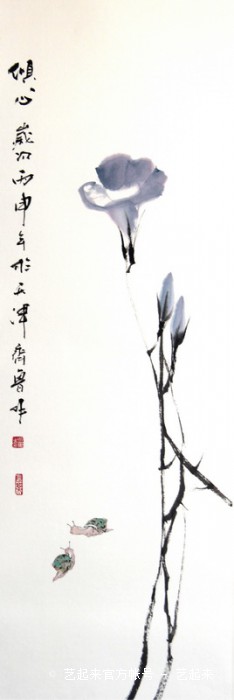 傾心 歲次丙申年於天津齊魯
© 艺起来官方帐号 · 艺起来